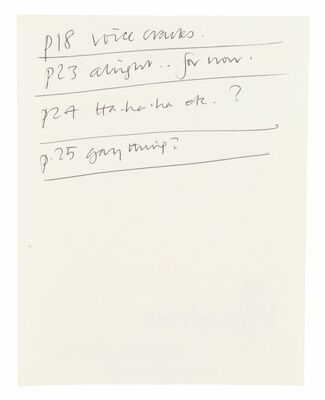 p18 voice cracks.
p23 alright.. for now.
p24 Ha.ha.ha ok. ?
p.25 thing?